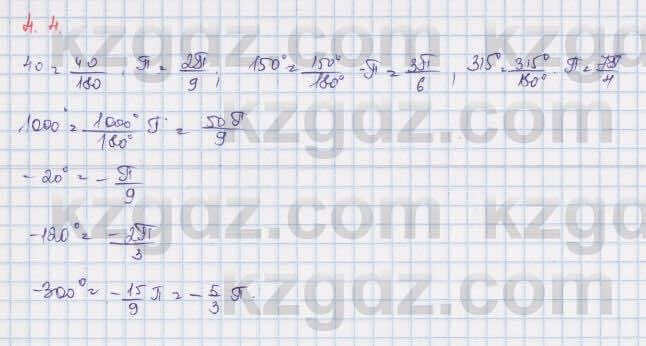 4.4.
40 = 40/180 · π = 2π/9; 150° = 150°/180° · π = 5π/6; 315° = 315°/180° · π = 7π/4
1000° = 1000°/180° π = 50π/9
-20° = -π/9
-120° = -2π/3
-300° = -15/9 π = -5/3 π.
kzgdz.com
kzgdz.com
kzgdz.com